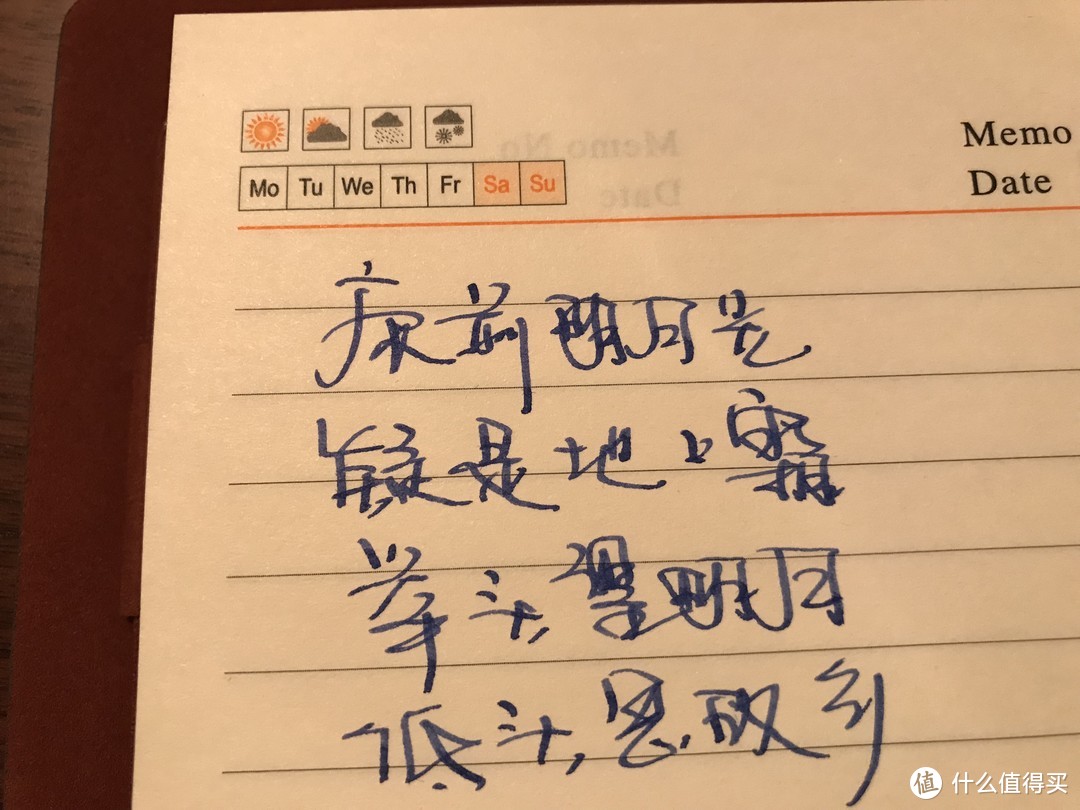 Memo No.
Date
Memo
Date
Mo Tu We Th Fr Sa Su
床前明月光
疑是地上霜
举头望明月
低头思故乡
值 什么值得买